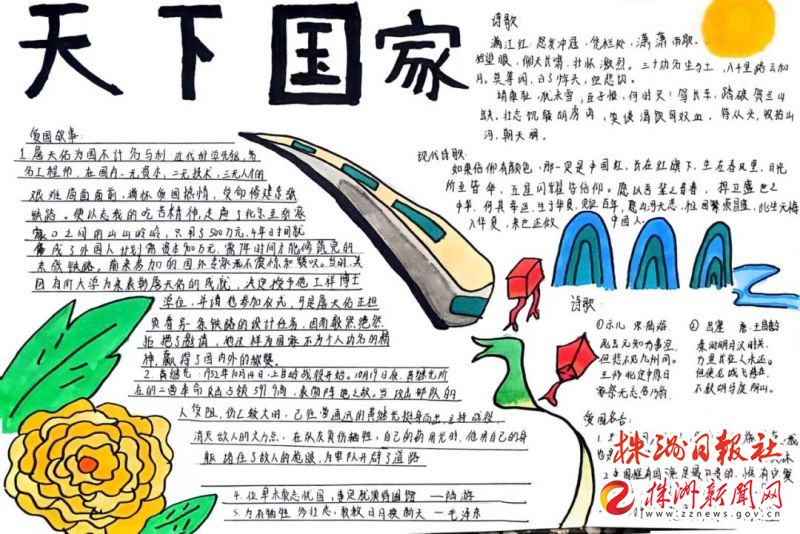 天下国家
诗歌
满江红 怒发冲冠，凭栏处，潇潇雨歇。
抬望眼，仰天长啸，壮怀激烈。三十功名尘与土，八千里路云和
月。莫等闲，白了少年头，空悲切。
靖康耻，犹未雪，臣子恨，何时灭！驾长车，踏破贺兰山
缺，壮志饥餐胡虏肉，笑谈渴饮匈奴血。待从头，收拾山
河，朝天阙。
现代诗歌：
如果信仰有颜色，那一定是中国红，长在红旗下，生在春风里，目光
所至皆华，五星闪耀皆信仰。愿以吾辈之青春，捍卫盛世之
中华，何其幸运，生于华夏，见证百年，愿山河无恙，祖国繁荣昌盛，此生无悔
入华夏，来世还做中国人。
爱国故事：
1.詹天佑为国不计名与利
为名工程师，在国内一无资本，二无技术，三无人才的
艰难局面面前，满怀爱国热情，受命修建京张
铁路。
家口之间的山山岭岭，只用了500万元，4年时间就
成了外国人计划需资本900万元，需7年时间才能修筑完的
京张铁路。前来参加的国外专家无不震惊和赞叹。当时，美
国有所大学为表彰詹天佑的成就，决定授予他工科博士
学位，并请他参加仪式，可是詹天佑正担
负着另一条铁路的设计任务，因而毅然绝然
拒绝了邀请，他这样为国家不为个人功名的精
神，赢得了国内外的被赞。
2.黄继光：1952年10月14日，上甘岭战役开始。10月19日夜，黄继光所
在的二营奉命
人受阻，伤亡较大时，已任营通讯员的黄继光挺身而出，主动请战
消灭敌人的火力点，在队友负伤牺牲，自己的
躯堵住了敌人的炮眼，为部队开辟了道路
4.位卑未敢忘忧国，事定犹须待阖棺 —陆游
5.为有牺牲多壮志，敢教日月换新天 —毛泽东
诗歌：
①示儿 宋 陆游
死去元知万事空，
但悲不见九州同。
王师北定中原日
家祭无忘告乃翁。
②出塞 唐 王昌龄
秦时明月汉时关，
万里长征人未还。
但使龙城飞将在，
不教胡马度阴山。
爱国名言：
株洲日报社
株洲新闻网
www.zznews.gov.cn